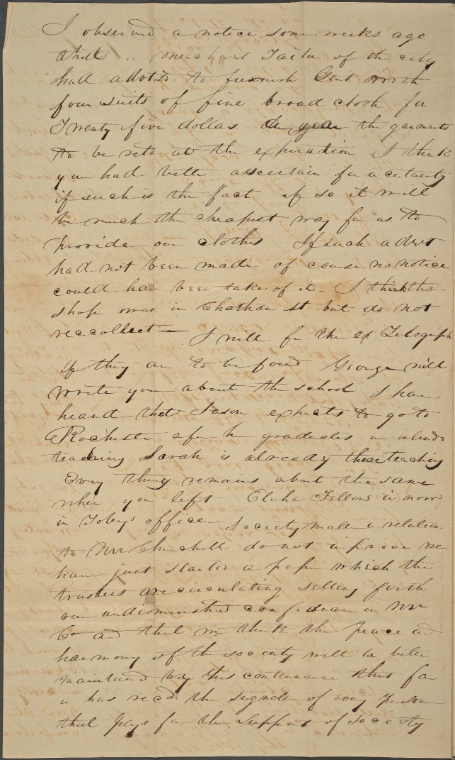 I observed a notice some weeks ago
that a merchant Tailor of the city
had offered to furnish Gent with
four suits of fine broad cloth for
Twenty five dollars a year the garments
to be retd at the expiration I think
you had better ascertain for a certainty
if such is the fact if so it will
be much the cheapest way for us to
provide our cloths If such advert
had not been made of course no notice
could have been take of it I think the
shop was in Chatham St but do not
reccollect — I will the Telegraph
if they are to be found George will
write you about the school I have
heard that Jason expects to go to
Rochester after he graduates
teaching Sarah is already there teaching
Every thing remains about the same
when you left Fellows is now
in Tobeys office Society matter in relation
to Mr Churchill do not improve we
have just started a paper which the
trustees are circulating setting forth
our undiminished confidence in Mr
C and that we think the peace and
harmony of the society will be better
maintaind by his continuance thus far
it has recd the signate of every person
that pays for the support of society